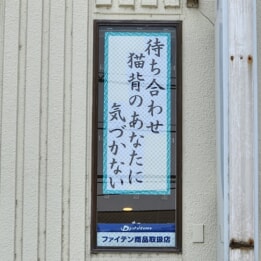 待ち合わせ
猫背のあなたに
気づかない
ファイテン商品取扱店